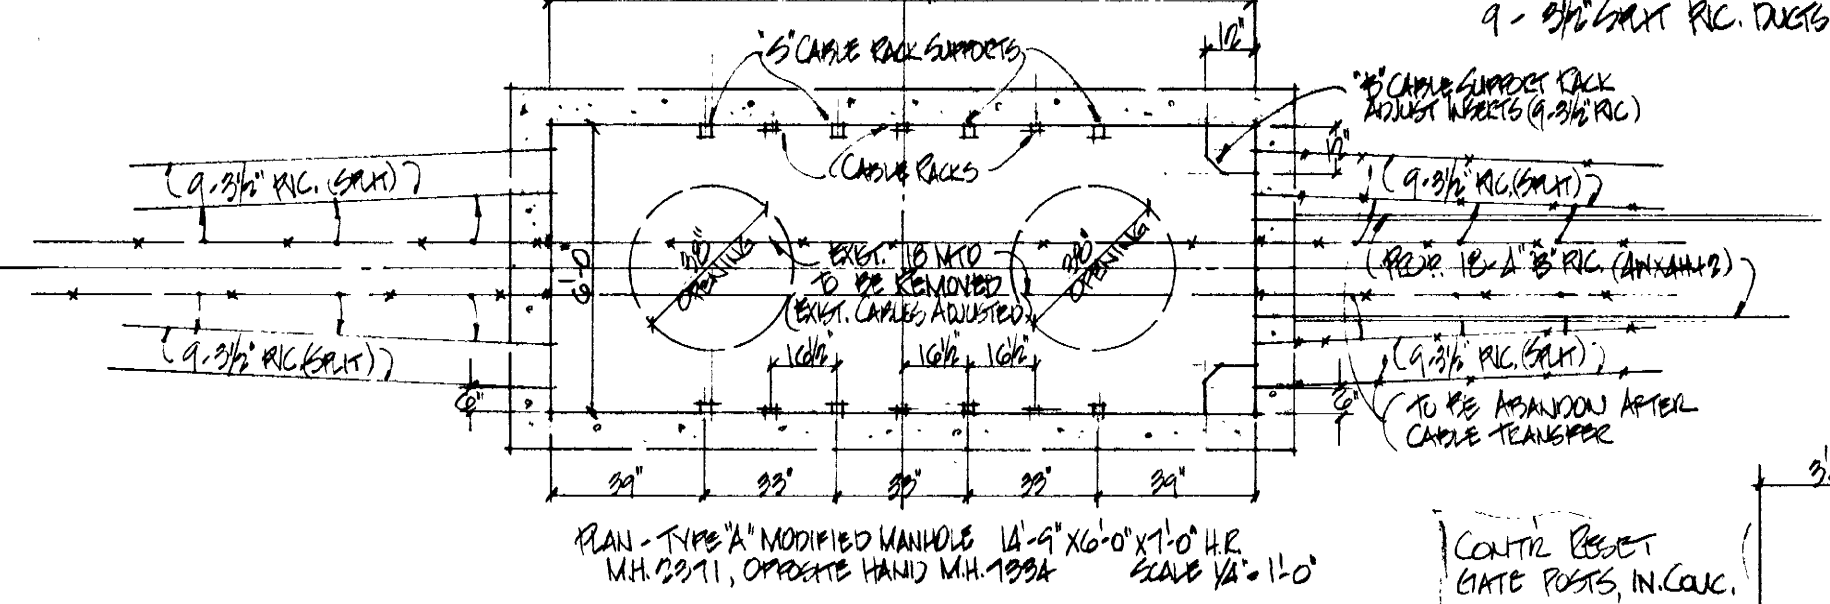 9 - 3½" SPLIT P.V.C. DUCTS
12"
"S" CABLE RACK SUPPORTS
"B" CABLE SUPPORT RACK
ADJUST INSERTS (9-3½" PVC)
12"
CABLE RACKS
9-3½" PVC. (SPLIT)
9-3½" PVC. (SPLIT)
6'-0"
38"
OPENING
EXIST. 18 MTD
TO BE REMOVED
(EXIST. CABLES ADJUSTED)
38"
OPENING
PROP. 18-4" "B" PVC. (4W×4H+2)
9-3½" PVC. (SPLIT)
16½"
16½"
16½"
9-3½" PVC. (SPLIT)
6"
6"
TO BE ABANDON AFTER
CABLE TRANSFER
39"
33"
33"
33"
39"
PLAN - TYPE "A" MODIFIED MANHOLE 14'-9" X 6'-0" X 7'-0" H.R.
M.H. 2371, OPPOSITE HAND M.H. 7334 SCALE ¼" = 1'-0"
CONTR. RESET
GATE POSTS, IN. CONC.